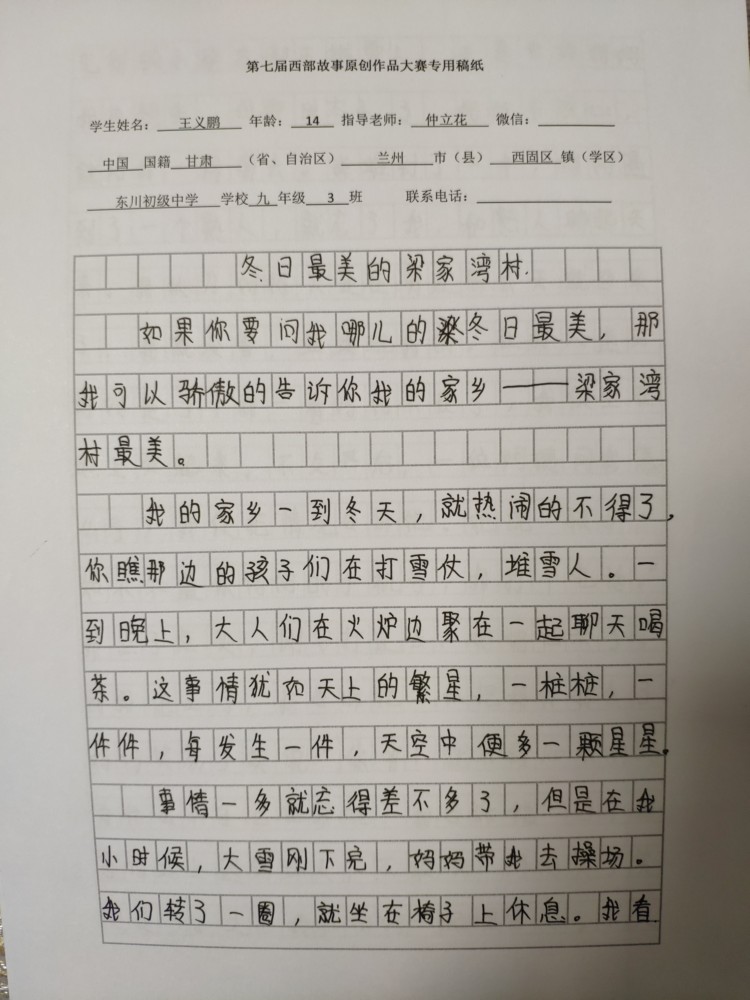 第七届西部故事原创作品大赛专用稿纸
学生姓名： 王义鹏 年龄： 14 指导老师： 仲立花 微信：
中国 国籍 甘肃 （省、自治区） 兰州 市（县） 西固区 镇（学区）
东川初级中学 学校 九 年级 3 班 联系电话：
冬日最美的梁家湾村.
如果你要问我哪儿的冬日最美，那
我可以骄傲的告诉你我的家乡——梁家湾
村最美。
我的家乡一到冬天，就热闹的不得了，
你瞧那边的孩子们在打雪仗，堆雪人。一
到晚上，大人们在火炉边聚在一起聊天喝
茶。这事情犹如天上的繁星，一桩桩，一
件件，每发生一件，天空中便多一颗星星。
事情一多就忘得差不多了，但是在我
小时候，大雪刚下完，妈妈带我去操场。
我们转了一圈，就坐在椅子上休息。我看